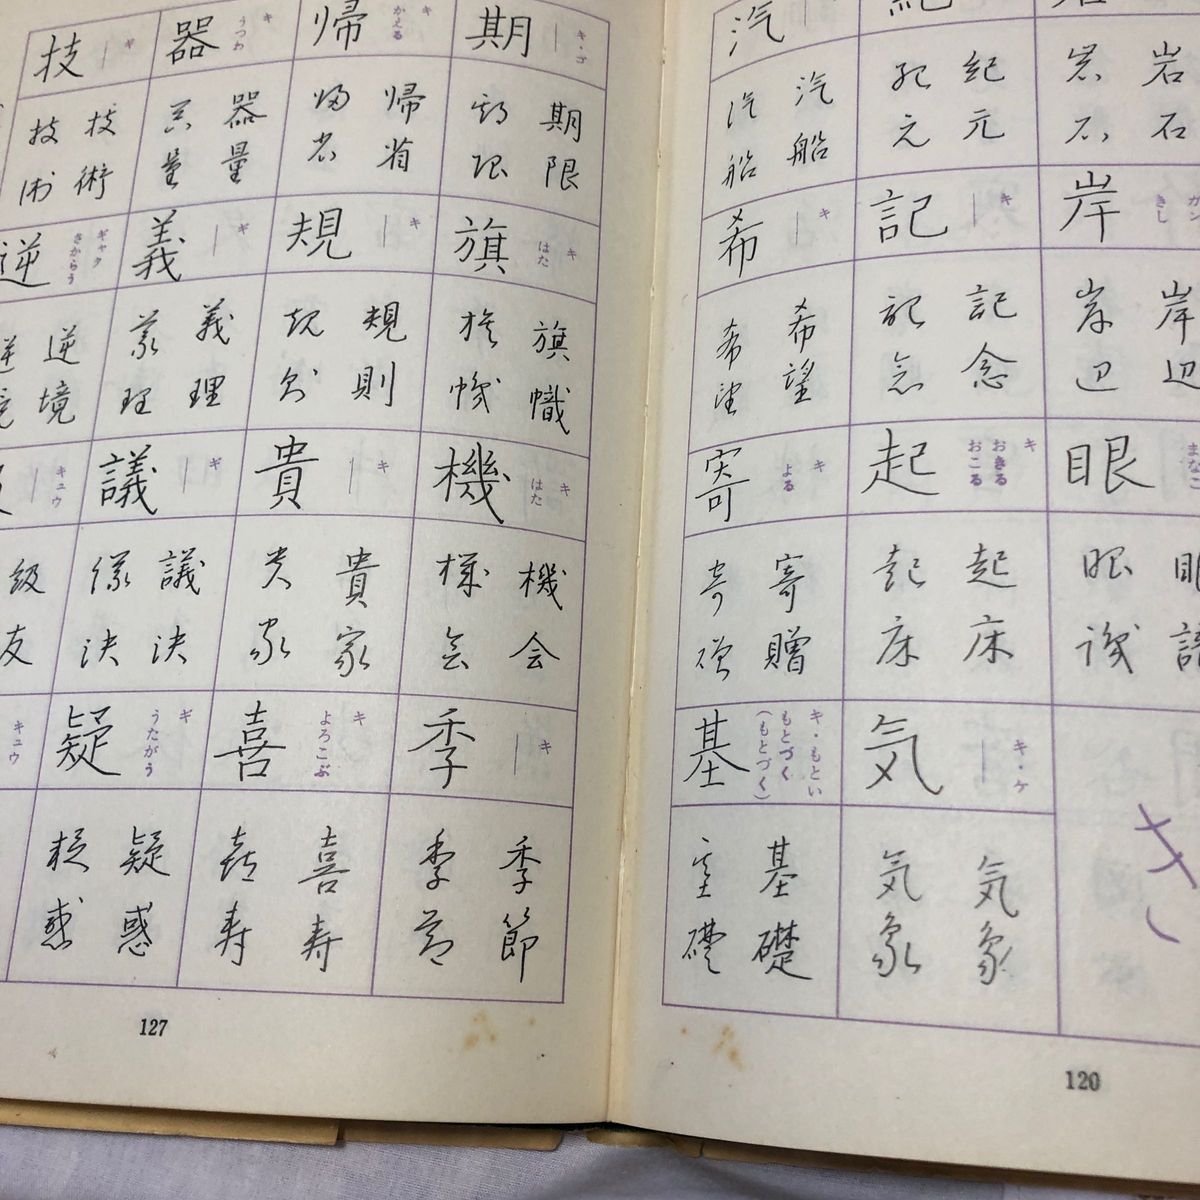 岩石
岩石
岸
ガン
きし
岸辺
岸辺
眼
まなこ
眼識
き
紀元
紀元
記
キ
記念
記念
起
キ
おきる
おこる
起床
起床
気
キ・ケ
気象
気象
汽
汽船
汽船
希
キ
希望
希望
寄
キ
よる
寄贈
寄贈
基
キ・もとい
もとづく
(もとづく)
基礎
基礎
120
期
キ・ゴ
期限
期限
旗
キ
はた
旗幟
旗幟
機
キ
はた
機会
機会
季
キ
季節
季節
帰
キ
かえる
帰省
帰省
規
キ
規則
規則
貴
キ
貴家
貴家
喜
キ
よろこぶ
喜寿
喜寿
器
キ
うつわ
器量
器量
義
ギ
義理
義理
議
ギ
議決
議決
疑
ギ
うたがう
疑惑
疑惑
技
ギ
技術
技術
逆
ギャク
さからう
逆境
逆境
キュウ
級友
キュウ
127